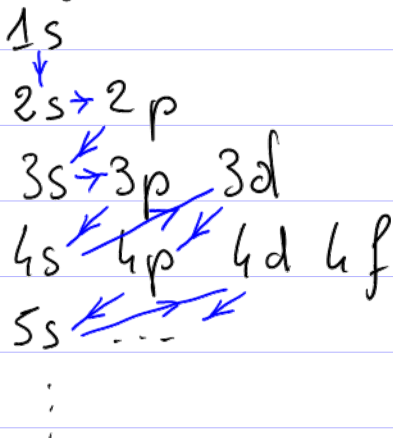 1s
2s → 2p
3s → 3p 3d
4s 4p 4d 4f
5s ...
⋮